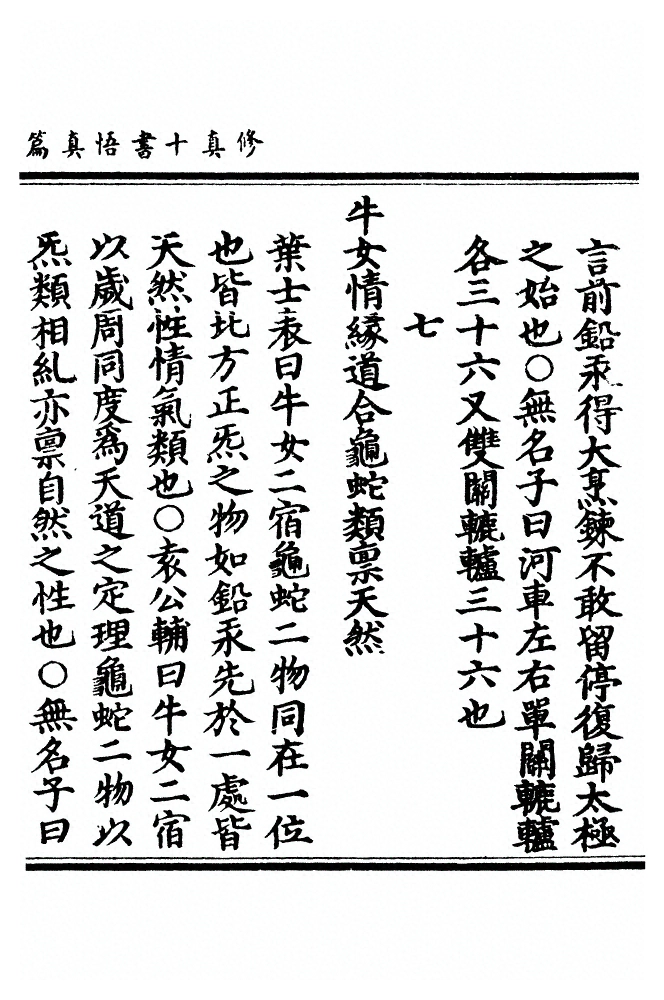 修真十書悟真篇
言前鉛汞得大烹鍊不敢留停復歸太極
之始也○無名子曰河車左右單關轆轤
各三十六又雙關轆轤三十六也
七
牛女情緣道合龜蛇類禀天然
葉士表曰牛女二宿龜蛇二物同在一位
也皆比方正炁之物如鉛汞先於一處皆
天然性情氣類也○袁公輔曰牛女二宿
以歲周同度為天道之定理龜蛇二物以
炁類相糺亦禀自然之性也○無名子曰